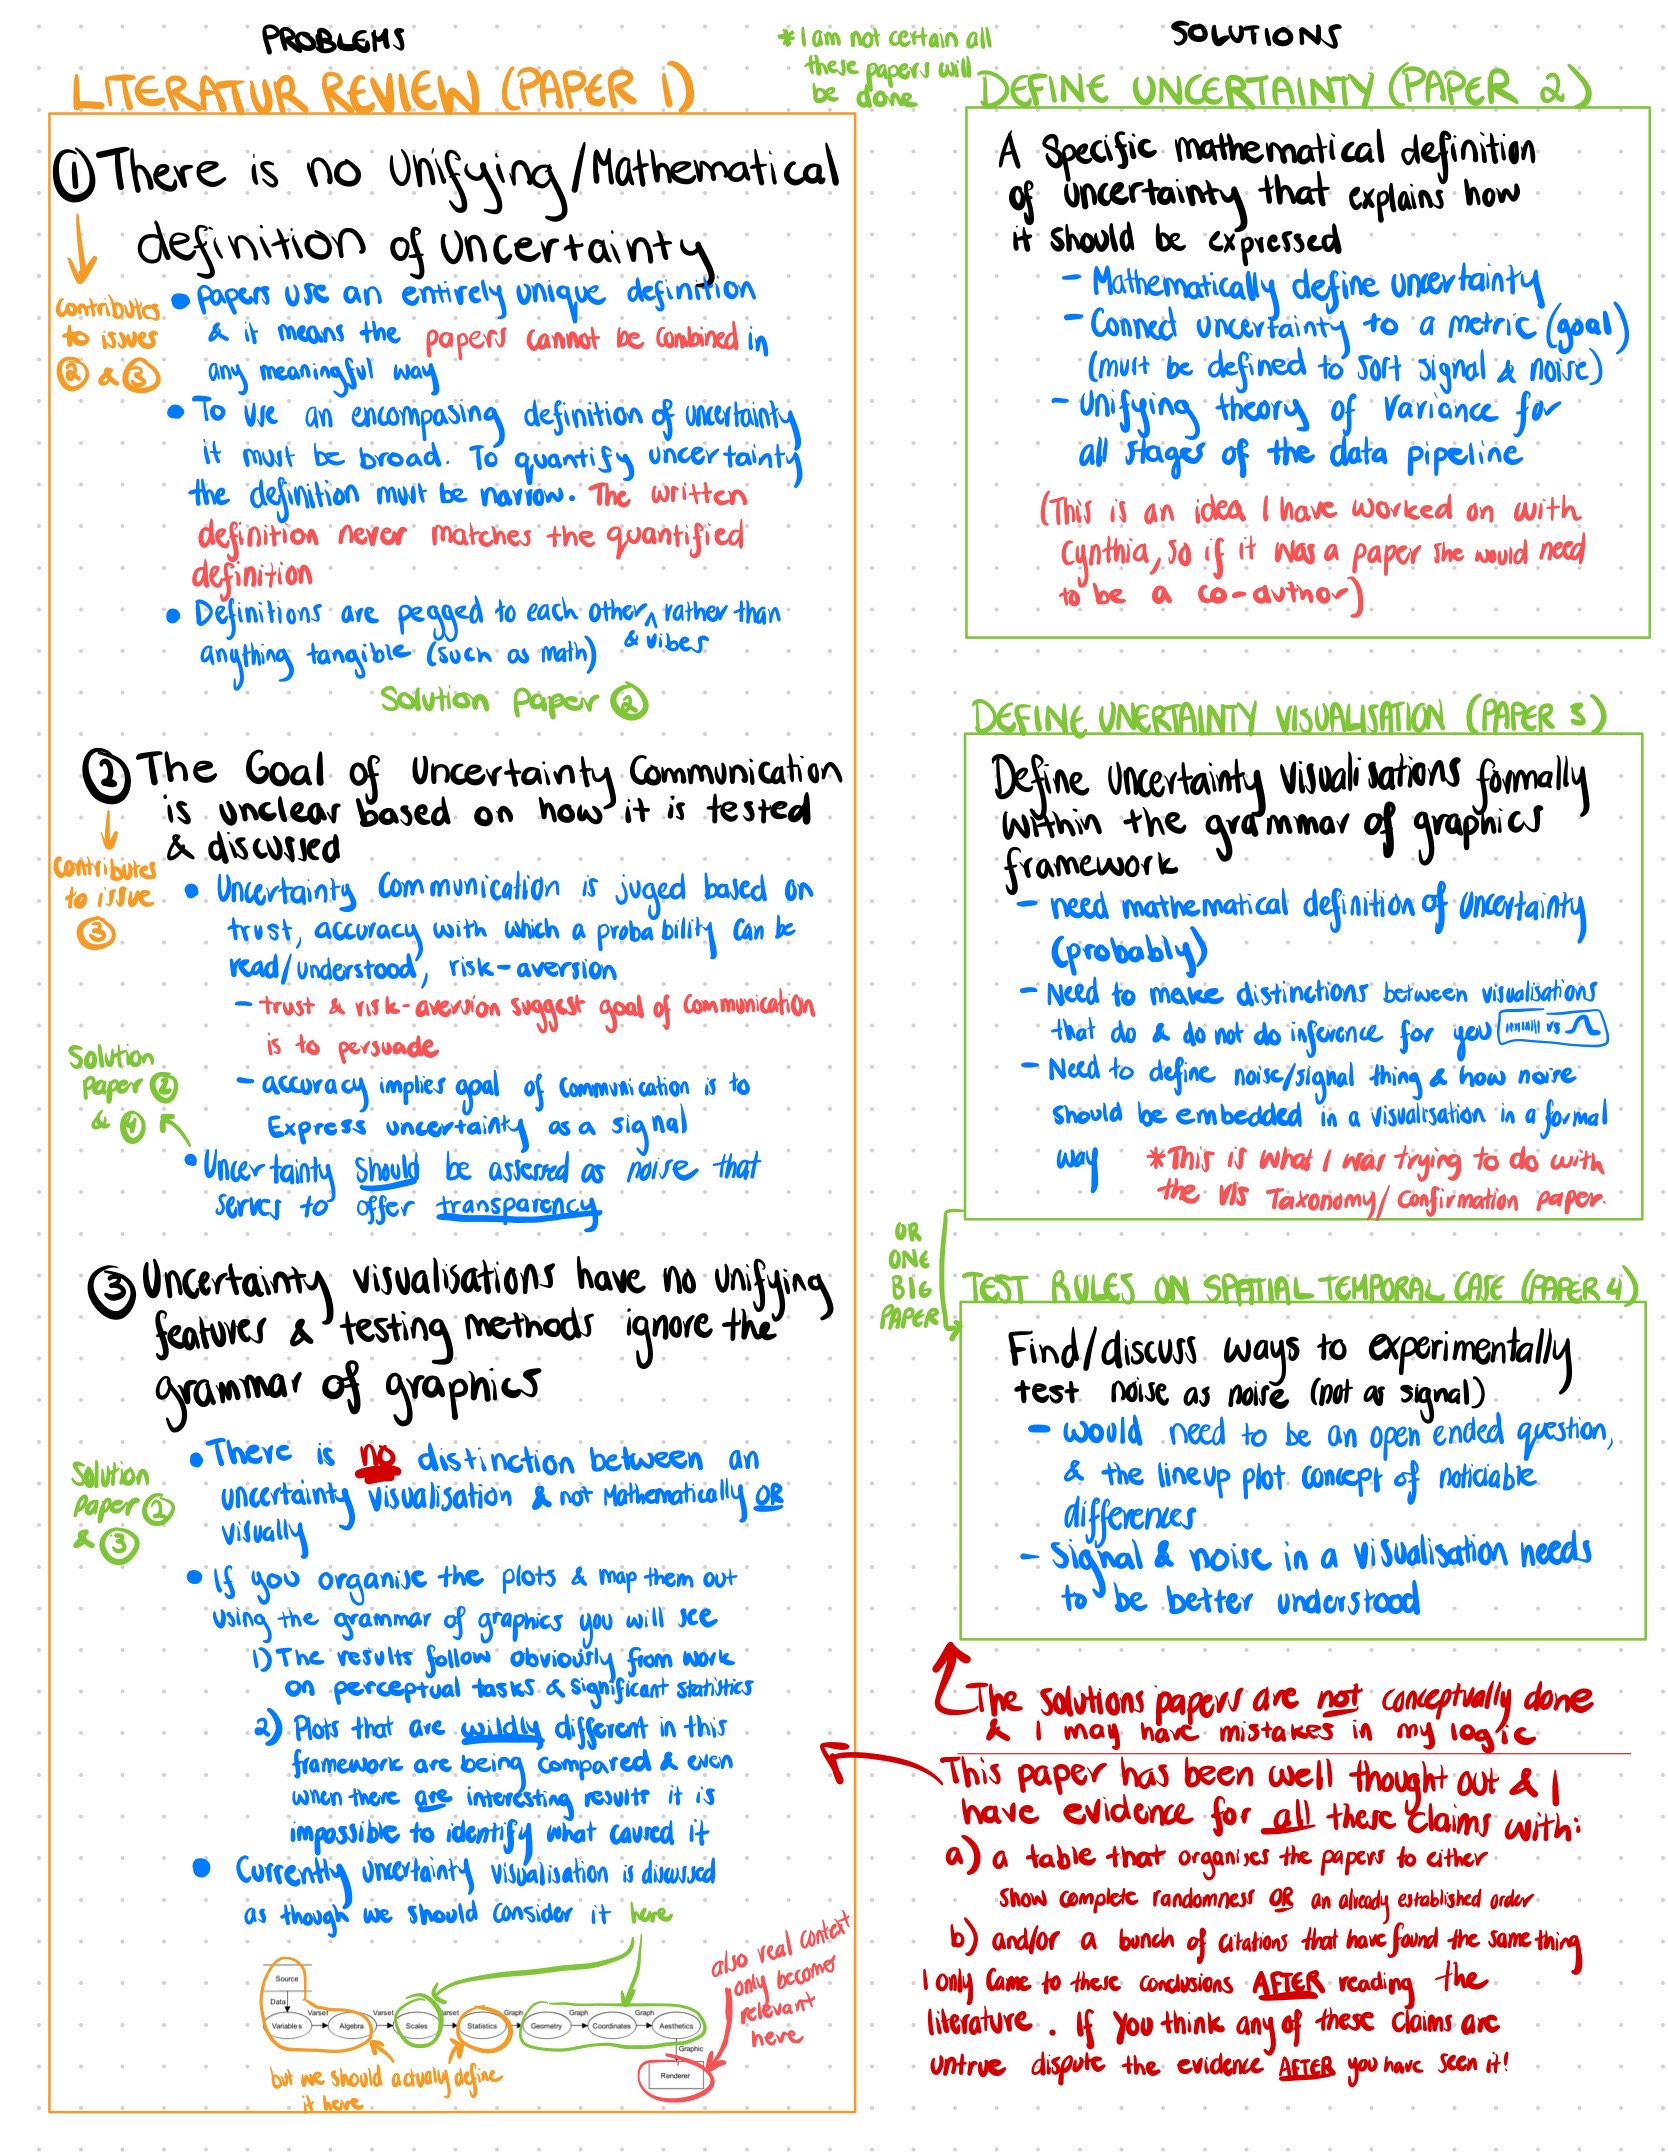 PROBLEMS
LITERATUR REVIEW (PAPER 1)
① There is no Unifying/Mathematical
definition of Uncertainty
Contributes
to issues
② & ③
• Papers use an entirely unique definition
& it means the papers cannot be combined in
any meaningful way
• To use an encompasing definition of uncertainty
it must be broad. To quantify uncertainty
the definition must be narrow. The written
definition never matches the quantified
definition
• Definitions are pegged to each other ^ rather than
& vibes
anything tangible (such as math)
Solution Paper ②
② The Goal of Uncertainty Communication
is unclear based on how it is tested
& discussed
Contributes
to issue
③
• Uncertainty Communication is juged based on
trust, accuracy with which a probability can be
read/understood, risk-aversion
- trust & risk-aversion suggest goal of communication
is to persuade
- accuracy implies goal of communication is to
Express uncertainty as a signal
Solution
Paper ②
& ④
• Uncertainty should be assessed as noise that
serves to offer transparency
③ Uncertainty visualisations have no unifying
features & testing methods ignore the
grammar of graphics
Solution
Paper ②
& ③
• There is no distinction between an
uncertainty visualisation & not Mathematically OR
visually
• If you organise the plots & map them out
using the grammar of graphics you will see
1) The results follow obviously from work
on perceptual tasks & significant statistics
2) Plots that are wildly different in this
framework are being compared & even
when there are interesting results it is
impossible to identify what caused it
• Currently uncertainty visualisation is discussed
as though we should consider it here
Source
Data
Varset
Varset
Varset
Graph
Graph
Graph
Variables
Algebra
Scales
Statistics
Geometry
Coordinates
Aesthetics
Graphic
Renderer
but we should actually define
it here
also real context
only becomes
relevant
here
* I am not certain all
these papers will
be done
SOLUTIONS
DEFINE UNCERTAINTY (PAPER 2)
A Specific mathematical definition
of uncertainty that explains how
it should be expressed
- Mathematically define uncertainty
- Connect uncertainty to a metric (goal)
(must be defined to sort signal & noise)
- Unifying theory of Variance for
all stages of the data pipeline
(This is an idea I have worked on with
Cynthia, so if it was a paper she would need
to be a co-author)
DEFINE UNERTAINTY VISUALISATION (PAPER 3)
Define Uncertainty visualisations formally
within the grammar of graphics
framework
- need mathematical definition of uncertainty
(probably)
- Need to make distinctions between visualisations
that do & do not do inference for you
vs
- Need to define noise/signal thing & how noise
should be embedded in a visualisation in a formal
way
*This is what I was trying to do with
the vis Taxonomy/Confirmation paper.
OR
ONE
BIG
PAPER
TEST RULES ON SPATIAL TEMPORAL CASE (PAPER 4)
Find/discuss ways to experimentally
test noise as noise (not as signal)
- would need to be an open ended question,
& the lineup plot concept of noticiable
differences
- Signal & noise in a visualisation needs
to be better understood
The solutions papers are not conceptually done
& I may have mistakes in my logic
This paper has been well thought out & I
have evidence for all these claims with:
a) a table that organises the papers to either
show complete randomness OR an already established order
b) and/or a bunch of citations that have found the same thing
I only came to these conclusions AFTER reading the
literature. If you think any of these claims are
untrue dispute the evidence AFTER you have seen it!